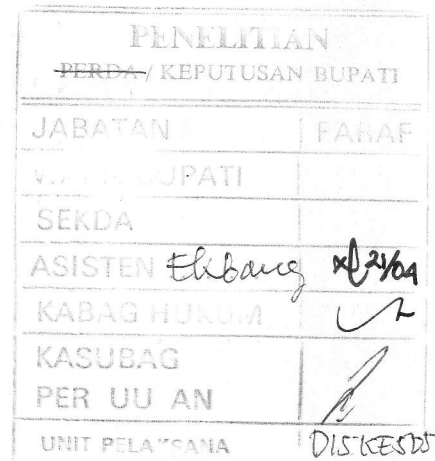 PENELITIAN
PERDA / KEPUTUSAN BUPATI
JABATAN PARAF
BUPATI
SEKDA
ASISTEN Ekbang 21/04
KABAG HUKUM
KASUBAG
PER UU AN
UNIT PELAKSANA